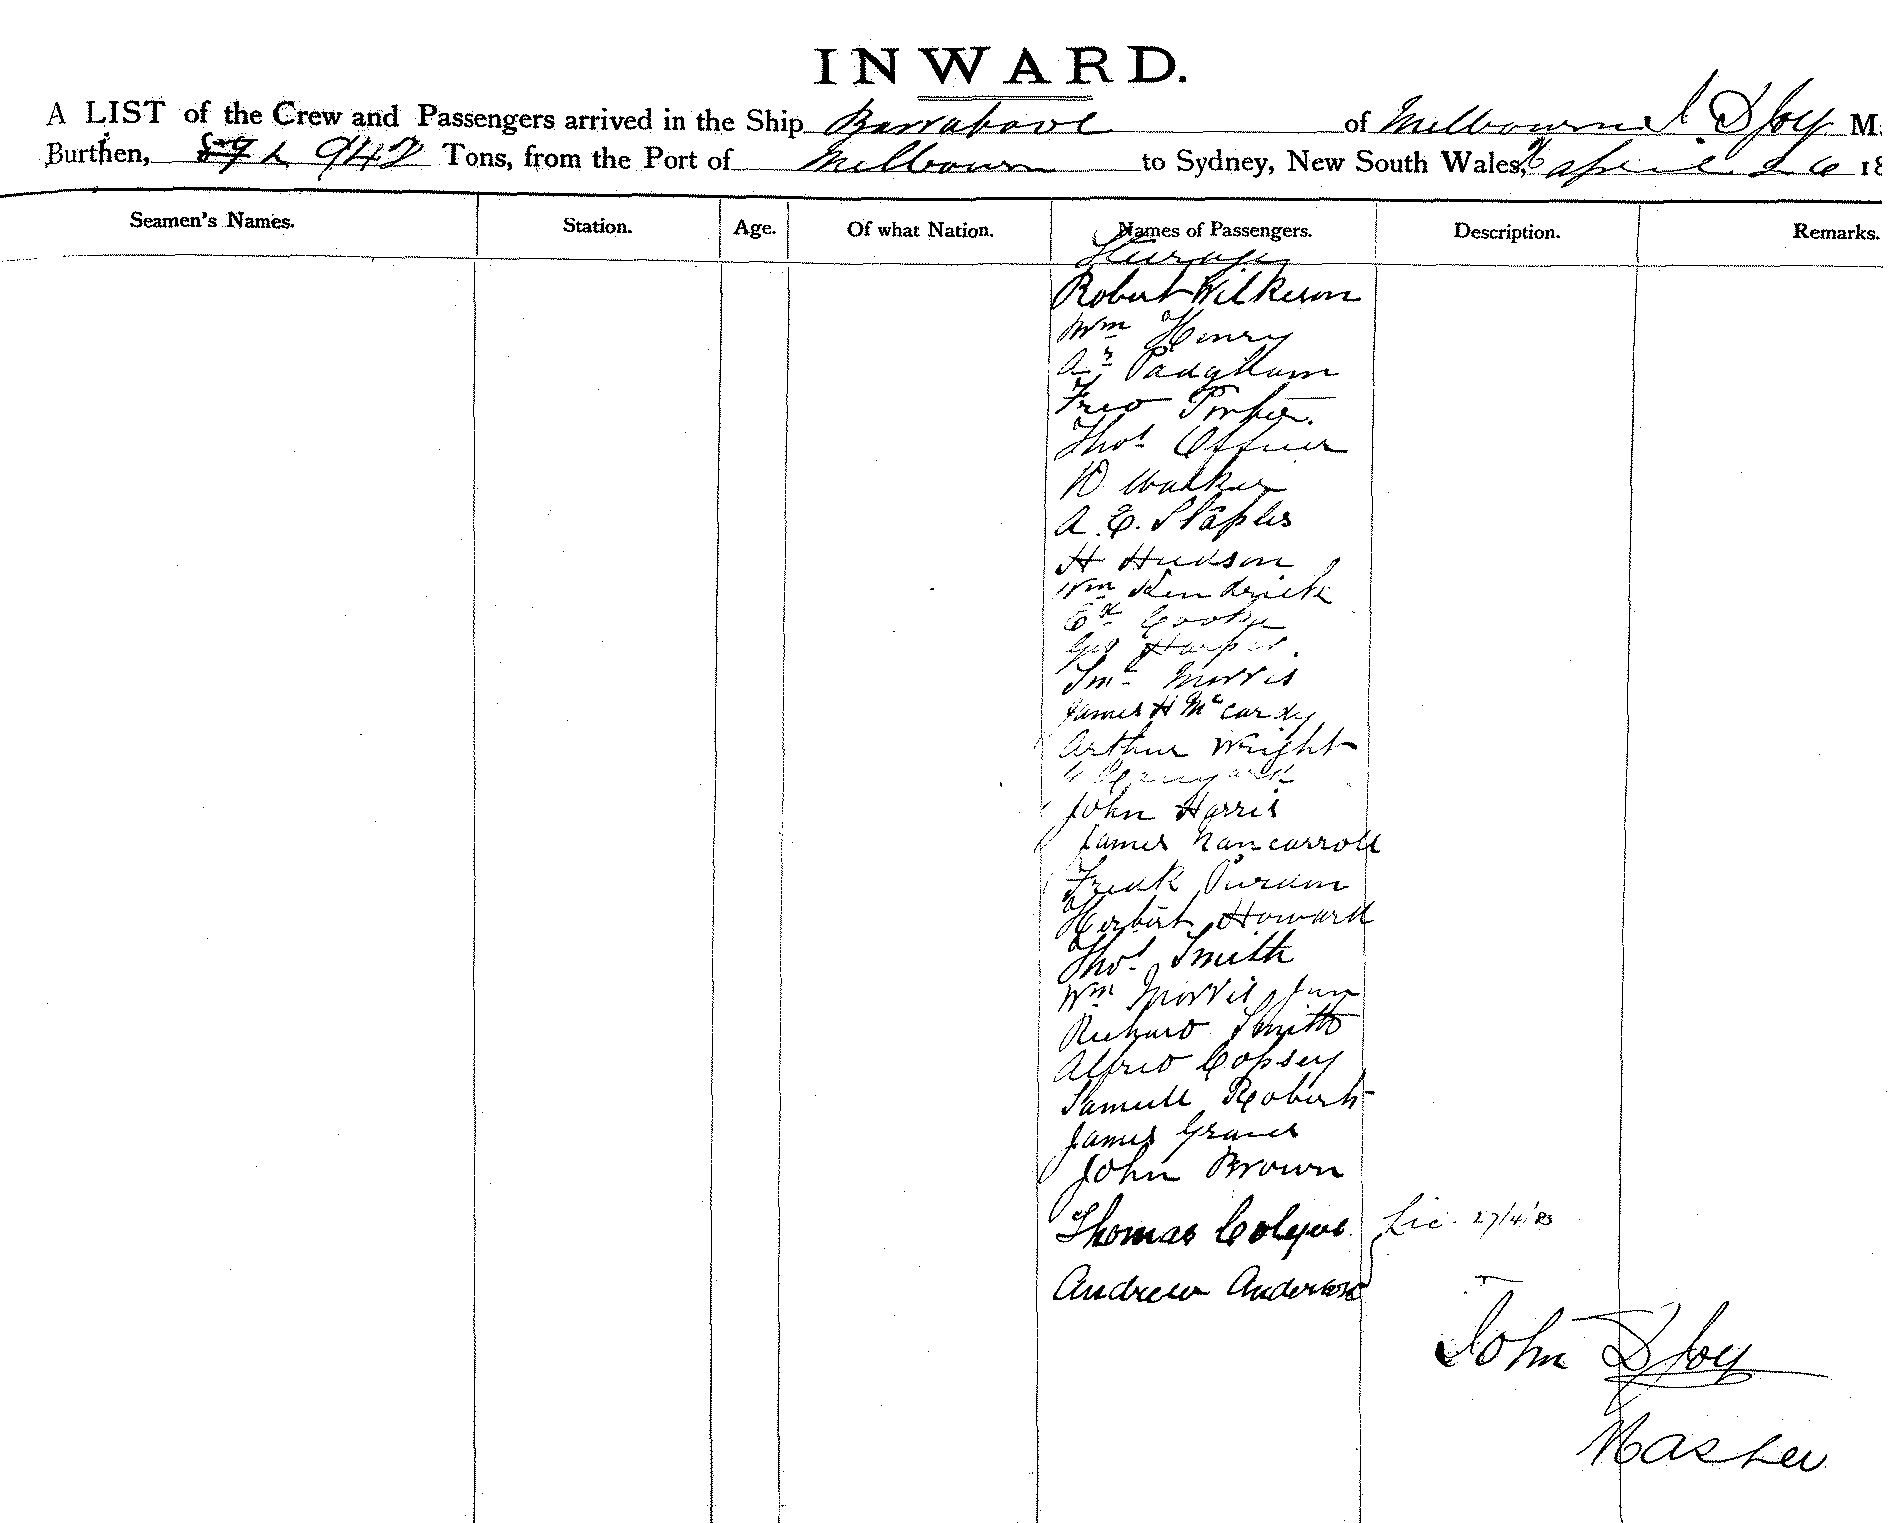 INWARD.
A LIST of the Crew and Passengers arrived in the Ship Barrabool of Melbourne J D Joy M
Burthen, 942 Tons, from the Port of Melbourn to Sydney, New South Wales, April 26 18
Seamen's Names. Station. Age. Of what Nation. Names of Passengers. Description. Remarks.
Steerage
Robert Wilkeson
Wm Henry
Padgham
Fred Porter.
Thos Officer
D Walker
A. E. Staples
H Hudson
Wm Kendrick
Ed Cooke
Geo Harper.
Morris
James H McCardy
Arthur Wright
John Harris
James Nancarroll
Fredk Purdom
Herbert Howard
Thos Smith
Wm Morris Jun
Richard Smith
Alfred Copsey
Samuell Roberts
James Graves
John Brown
Thomas Lic. 27/4/83
Andrew Anderson
John D Joy
Master